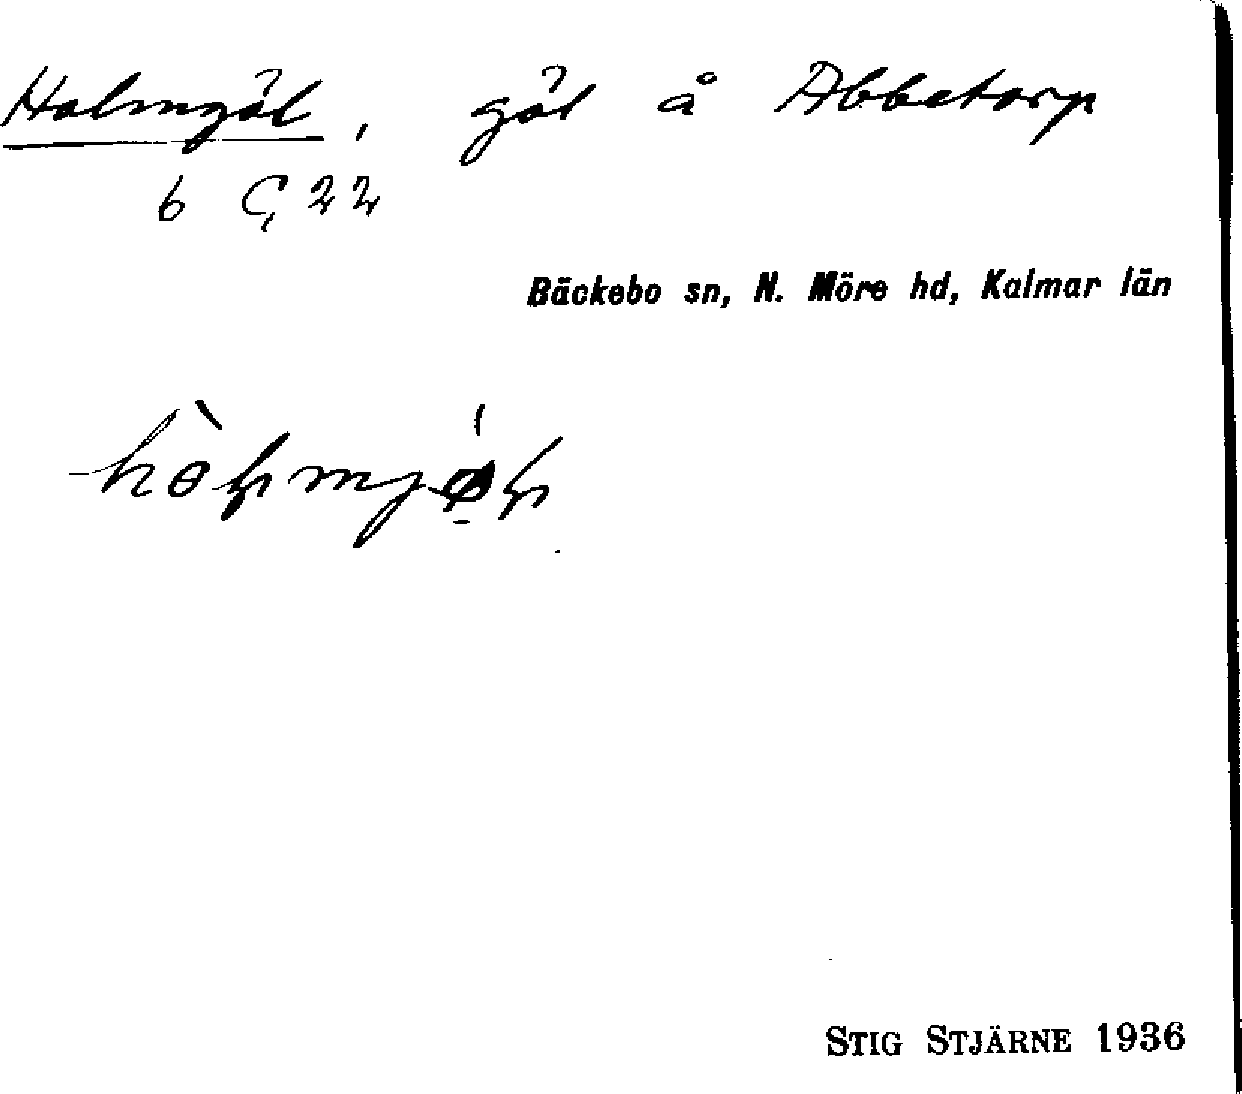 Holmgöl, göl å Abbetorp
6 C, 22
Bäckebo sn, N. Möre hd, Kalmar län
STIG STJÄRNE 1936